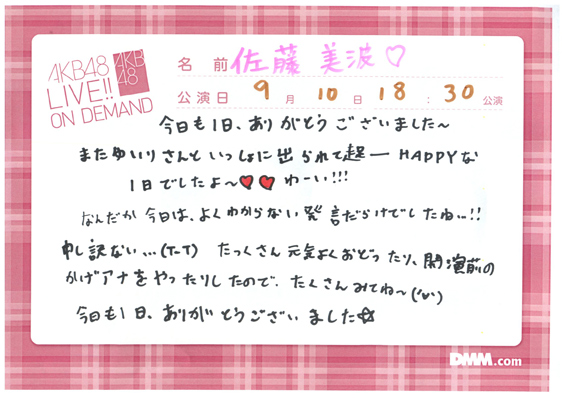 AKB48
LIVE!!
ON DEMAND
AKB
48
名前 佐藤美波♡
公演日 9月10日18:30公演
今日も1日、ありがとうございました〜
またゆいりさんといっしょに出られて超ーHAPPYな
1日でしたよ〜♥♥ わーい!!!
なんだか今日は、よくわからない発言だらけでしたね…!!
申し訳ない…(T-T) たっくさん元気よくおどったり、開演前の
かげアナをやったりしたので、たくさんみてね〜('∀')
今日も1日、ありがとうございました☆
DMM.com